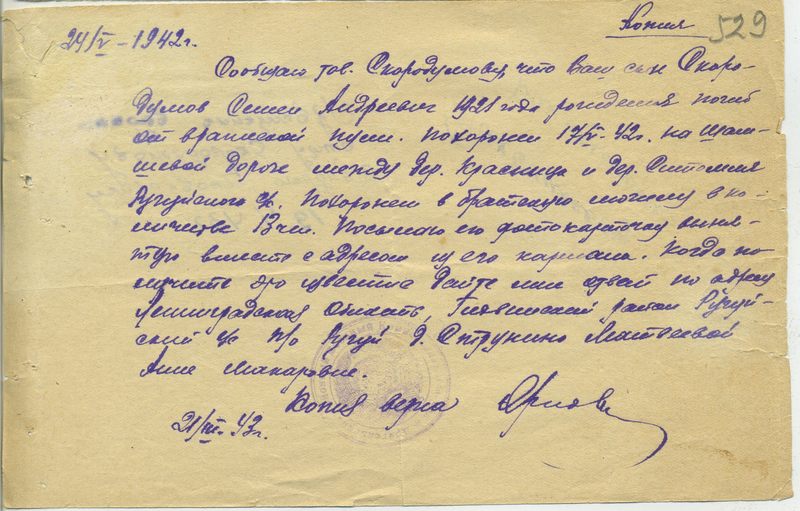 Копия 529
24/V-1942г.
Сообщаю тов. Скородумову, что Ваш сын Скоро-
думов Семен Андреевич 1921 года рождения погиб
от вражеской пули. Похоронен 17/V-42г. на
шевой дороге между дер. Красница и дер. Ситомля
Ругуйского с/с. Похоронен в братскую могилу в ко-
личестве 13 чел. Посылаю его фотокарточку выня-
тую вместе с адресом из его кармана. Когда по-
лучите это известие дайте мне ответ по адресу
Ленинградская Область, Тихвинский район Ругуй-
ский с/с п/о Ругуй д. Струнино Матвеевой
Анне Макаровне.
Копия верна
21/ 43г.